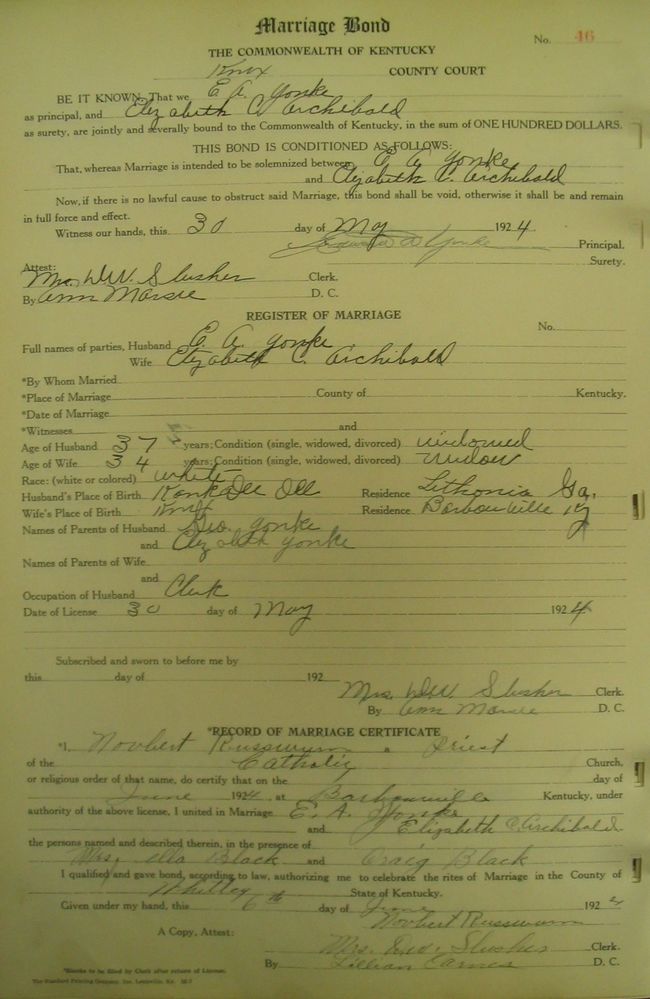 Marriage Bond
No. 46
THE COMMONWEALTH OF KENTUCKY
Knox COUNTY COURT
BE IT KNOWN, That we E. A. Yonke
as principal, and Elizabeth C. Archibald
as surety, are jointly and severally bound to the Commonwealth of Kentucky, in the sum of ONE HUNDRED DOLLARS.
THIS BOND IS CONDITIONED AS FOLLOWS:
That, whereas Marriage is intended to be solemnized between E. A. Yonke
and Elizabeth C. Archibald
Now, if there is no lawful cause to obstruct said Marriage, this bond shall be void, otherwise it shall be and remain
in full force and effect.
Witness our hands, this 30 day of May 1924
Edward A Yonke Principal.
Surety.
Attest:
Mrs. D.W. Slusher Clerk.
By Ann D. C.
REGISTER OF MARRIAGE
No.
Full names of parties, Husband E. A. Yonke
Wife Elizabeth C. Archibald
*By Whom Married
*Place of Marriage County of Kentucky.
*Date of Marriage
*Witnesses and
Age of Husband 37 years; Condition (single, widowed, divorced) widowed
Age of Wife 34 years; Condition (single, widowed, divorced) widow
Race: (white or colored) White
Husband's Place of Birth Kankakee Ill Residence Lithonia Ga.
Wife's Place of Birth Knox Residence Barbourville Ky
Names of Parents of Husband Geo. Yonke
and Elizabeth Yonke
Names of Parents of Wife
and
Occupation of Husband Clerk
Date of License 30 day of May 1924
Subscribed and sworn to before me by
this day of 192
Mrs. D.W. Slusher Clerk.
By Ann D. C.
*RECORD OF MARRIAGE CERTIFICATE
*I, Norbert Russwurm a Priest
of the Catholic Church,
or religious order of that name, do certify that on the day of
June 1924, at Barbourville Kentucky, under
authority of the above license, I united in Marriage E. A. Yonke
and Elizabeth C. Archibald
the persons named and described therein, in the presence of
Mrs. Ella Black and Craig Black
I qualified and gave bond, according to law, authorizing me to celebrate the rites of Marriage in the County of
Whitley State of Kentucky.
Given under my hand, this 6th day of June 1924
Norbert Russwurm
A Copy, Attest:
Mrs. D.W. Slusher Clerk.
By Lillian D. C.
*Blanks to be filled by Clerk after return of License.
The Standard Printing Company, Inc. Louisville, Ky.